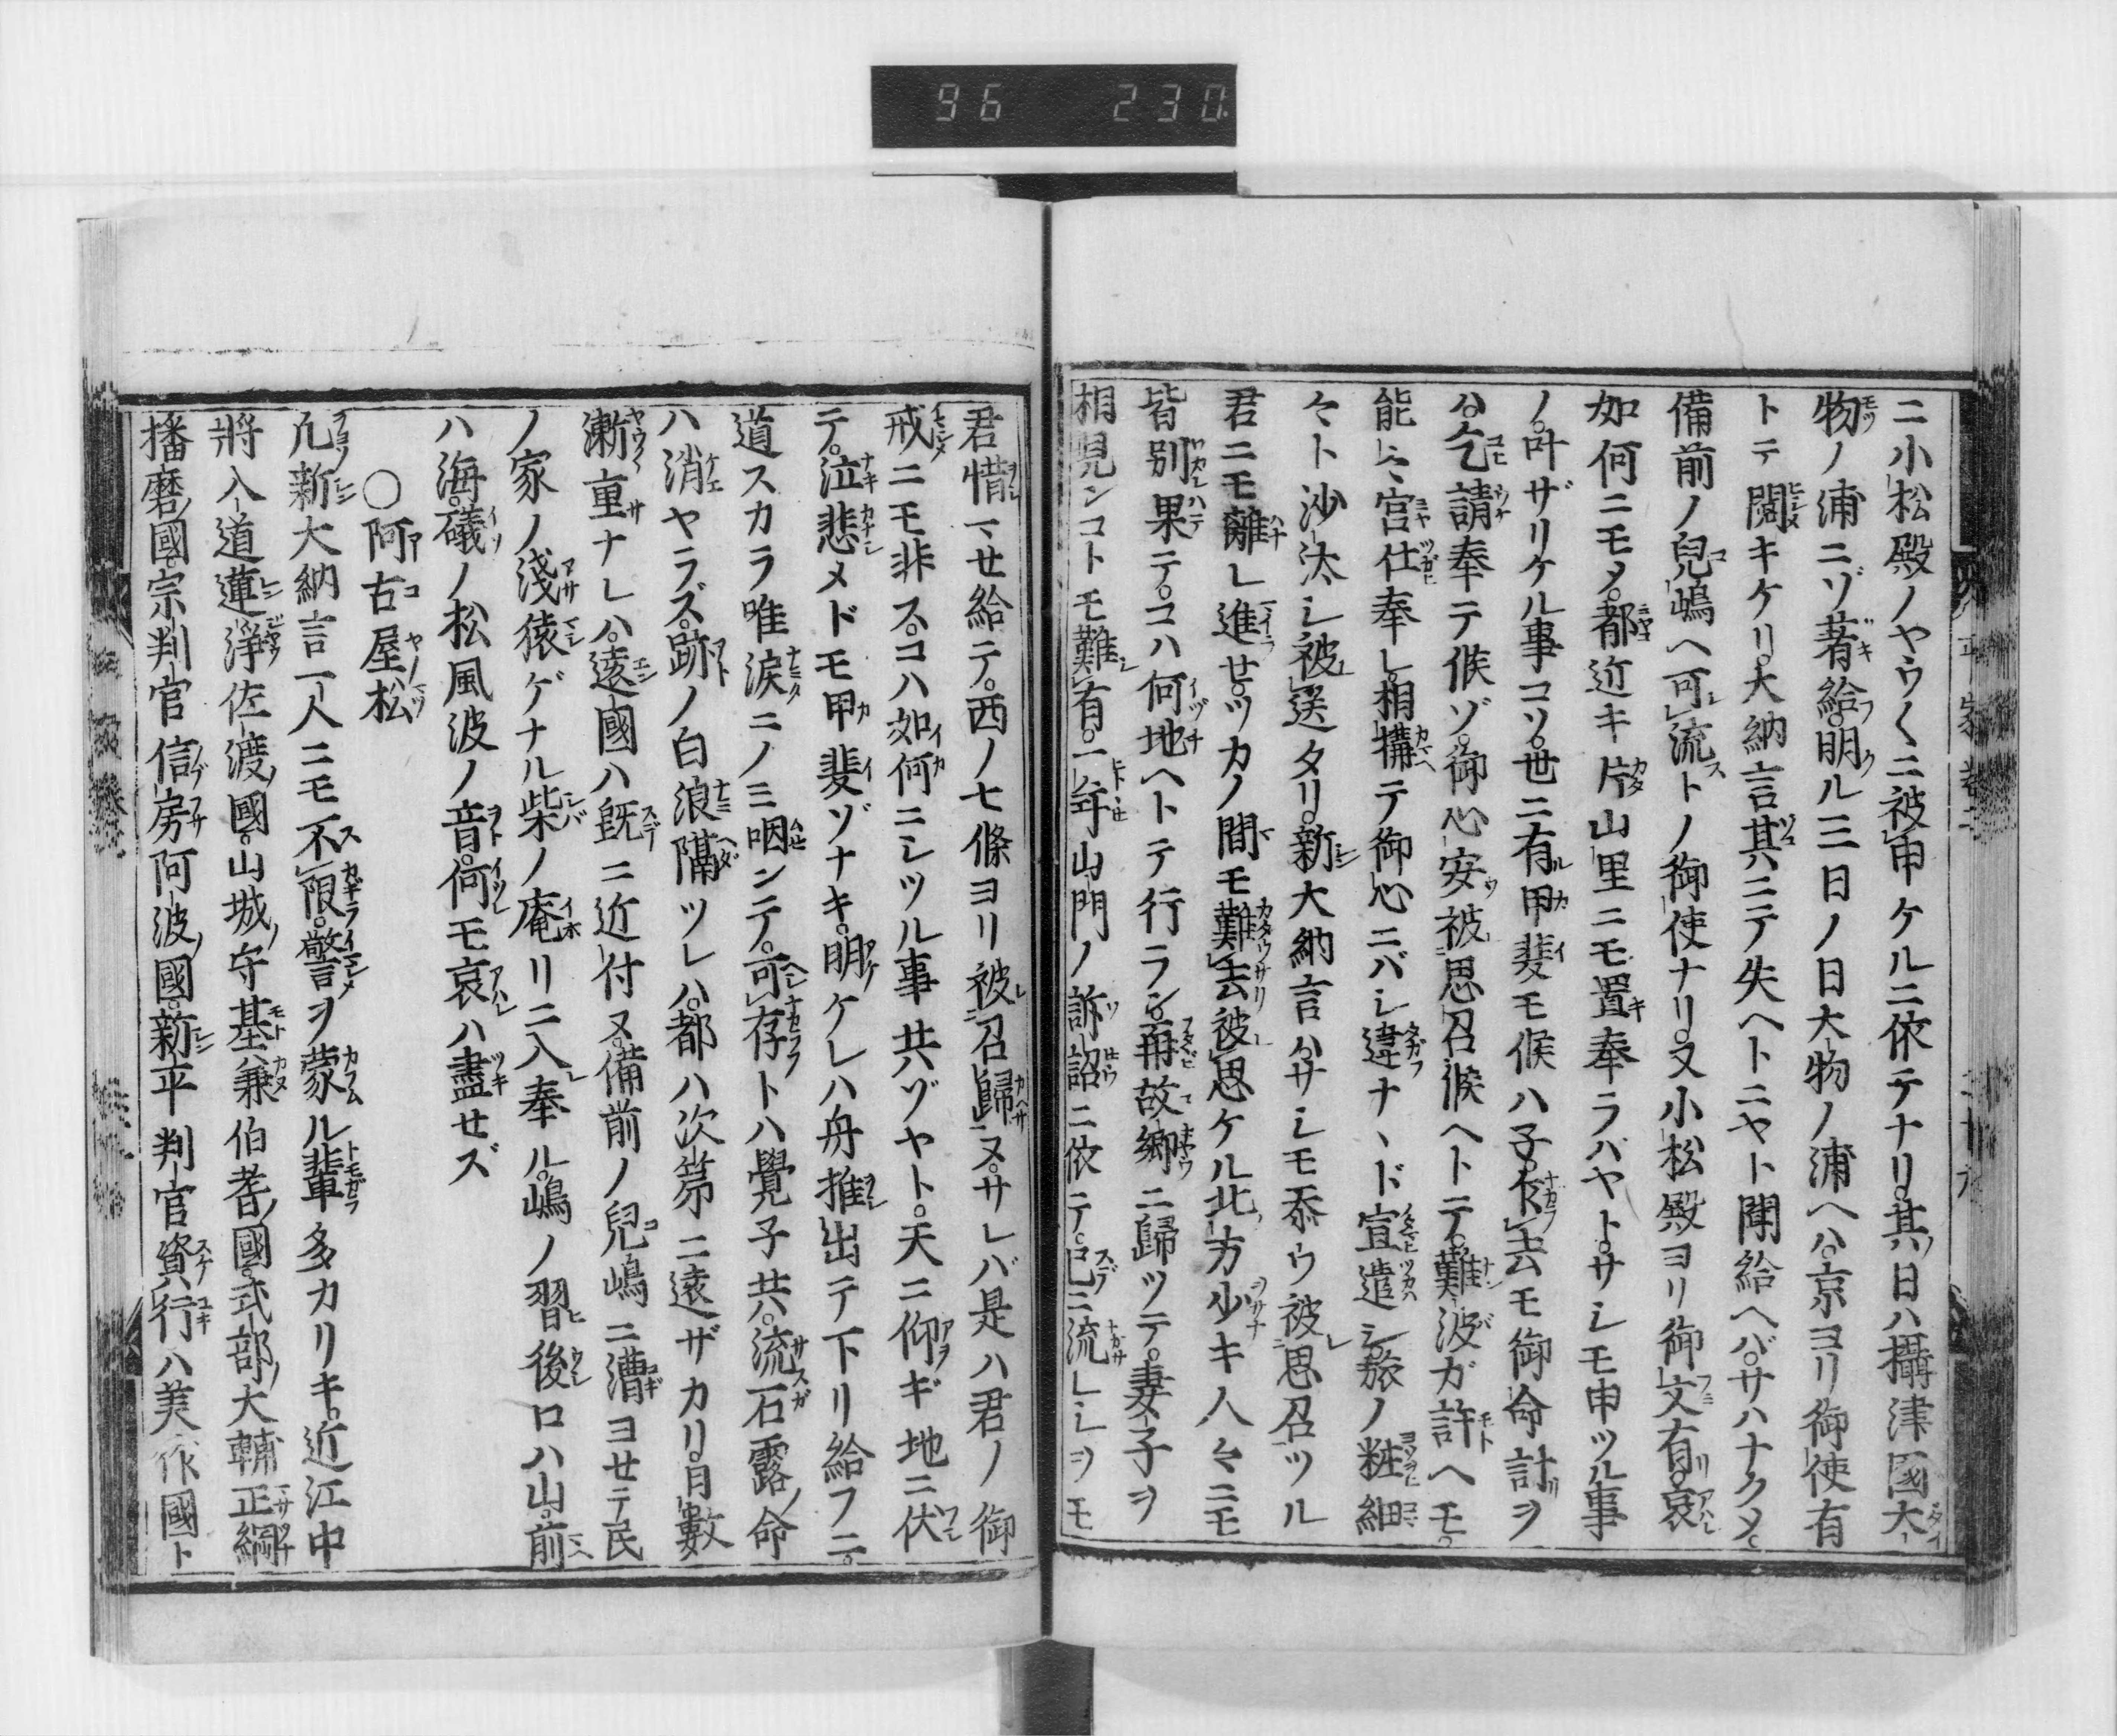 96 230
ニ小松殿ノヤウ〱ニ被申ケルニ依テナリ其日ハ攝津國大
物ノ浦ニゾ著給明ル三日ノ日大物ノ浦ヘハ京ヨリ御使有
トテ閧キケリ大納言其ニテ失ヘトニヤト聞給ヘバサハナクメ
備前ノ兒嶋ヘ可流トノ御使ナリ又小松殿ヨリ御文有哀
如何ニモメ都近キ片山里ニモ置奉ラバヤトサシモ申ツル事
ノ叶ザリケル事コソ世ニ有甲斐モ候ハ子去モ御命計ヲ
ハ乞請奉テ候ゾ御心安被思召候ヘトテ難波ガ許ヘモ
能々宮仕奉レ相構テ御心ニバシ違ナヽド宣遣シ旅ノ粧細
々ト沙汰シ被送タリ新大納言ハサシモ忝ウ被思召ツル
君ニモ離レ進セツカノ間モ難去被思ケル北方少キ人々ニモ
皆別果テコハ何地ヘトテ行ラン再故郷ニ歸ツテ妻子ヲ
相見ンコトモ難有一年山門ノ訴詔ニ依テ已ニ流レシヲモ
君惜マセ給テ西ノ七條ヨリ被召歸ヌサレバ是ハ君ノ御
戒ニモ非スコハ如何ニシツル事共ゾヤト天ニ仰ギ地ニ伏
テ泣悲メドモ甲斐ゾナキ明ケレハ舟推出テ下リ給フニ
道スカラ唯涙ニノミ咽ンテ可存トハ覺子共流石露ノ命
ハ消ヤラズ跡ノ白浪隔ツレハ都ハ次第ニ遠ザカリ日數
漸重ナレハ遠國ハ既ニ近付ヌ備前ノ兒嶋ニ漕ヨセテ民
ノ家ノ淺猿ゲナル柴ノ庵リニ入奉ル嶋ノ習後ロハ山前
ハ海礒ノ松風波ノ音何モ哀ハ盡セズ
〇阿古屋松
凡新大納言一人ニモ不限警ヲ蒙ル輩多カリキ近江中
將入道蓮淨佐渡國山城守基兼伯耆國式部大輔正綱
播磨國宗判官信房阿波國新平判官資行ハ美作國ト